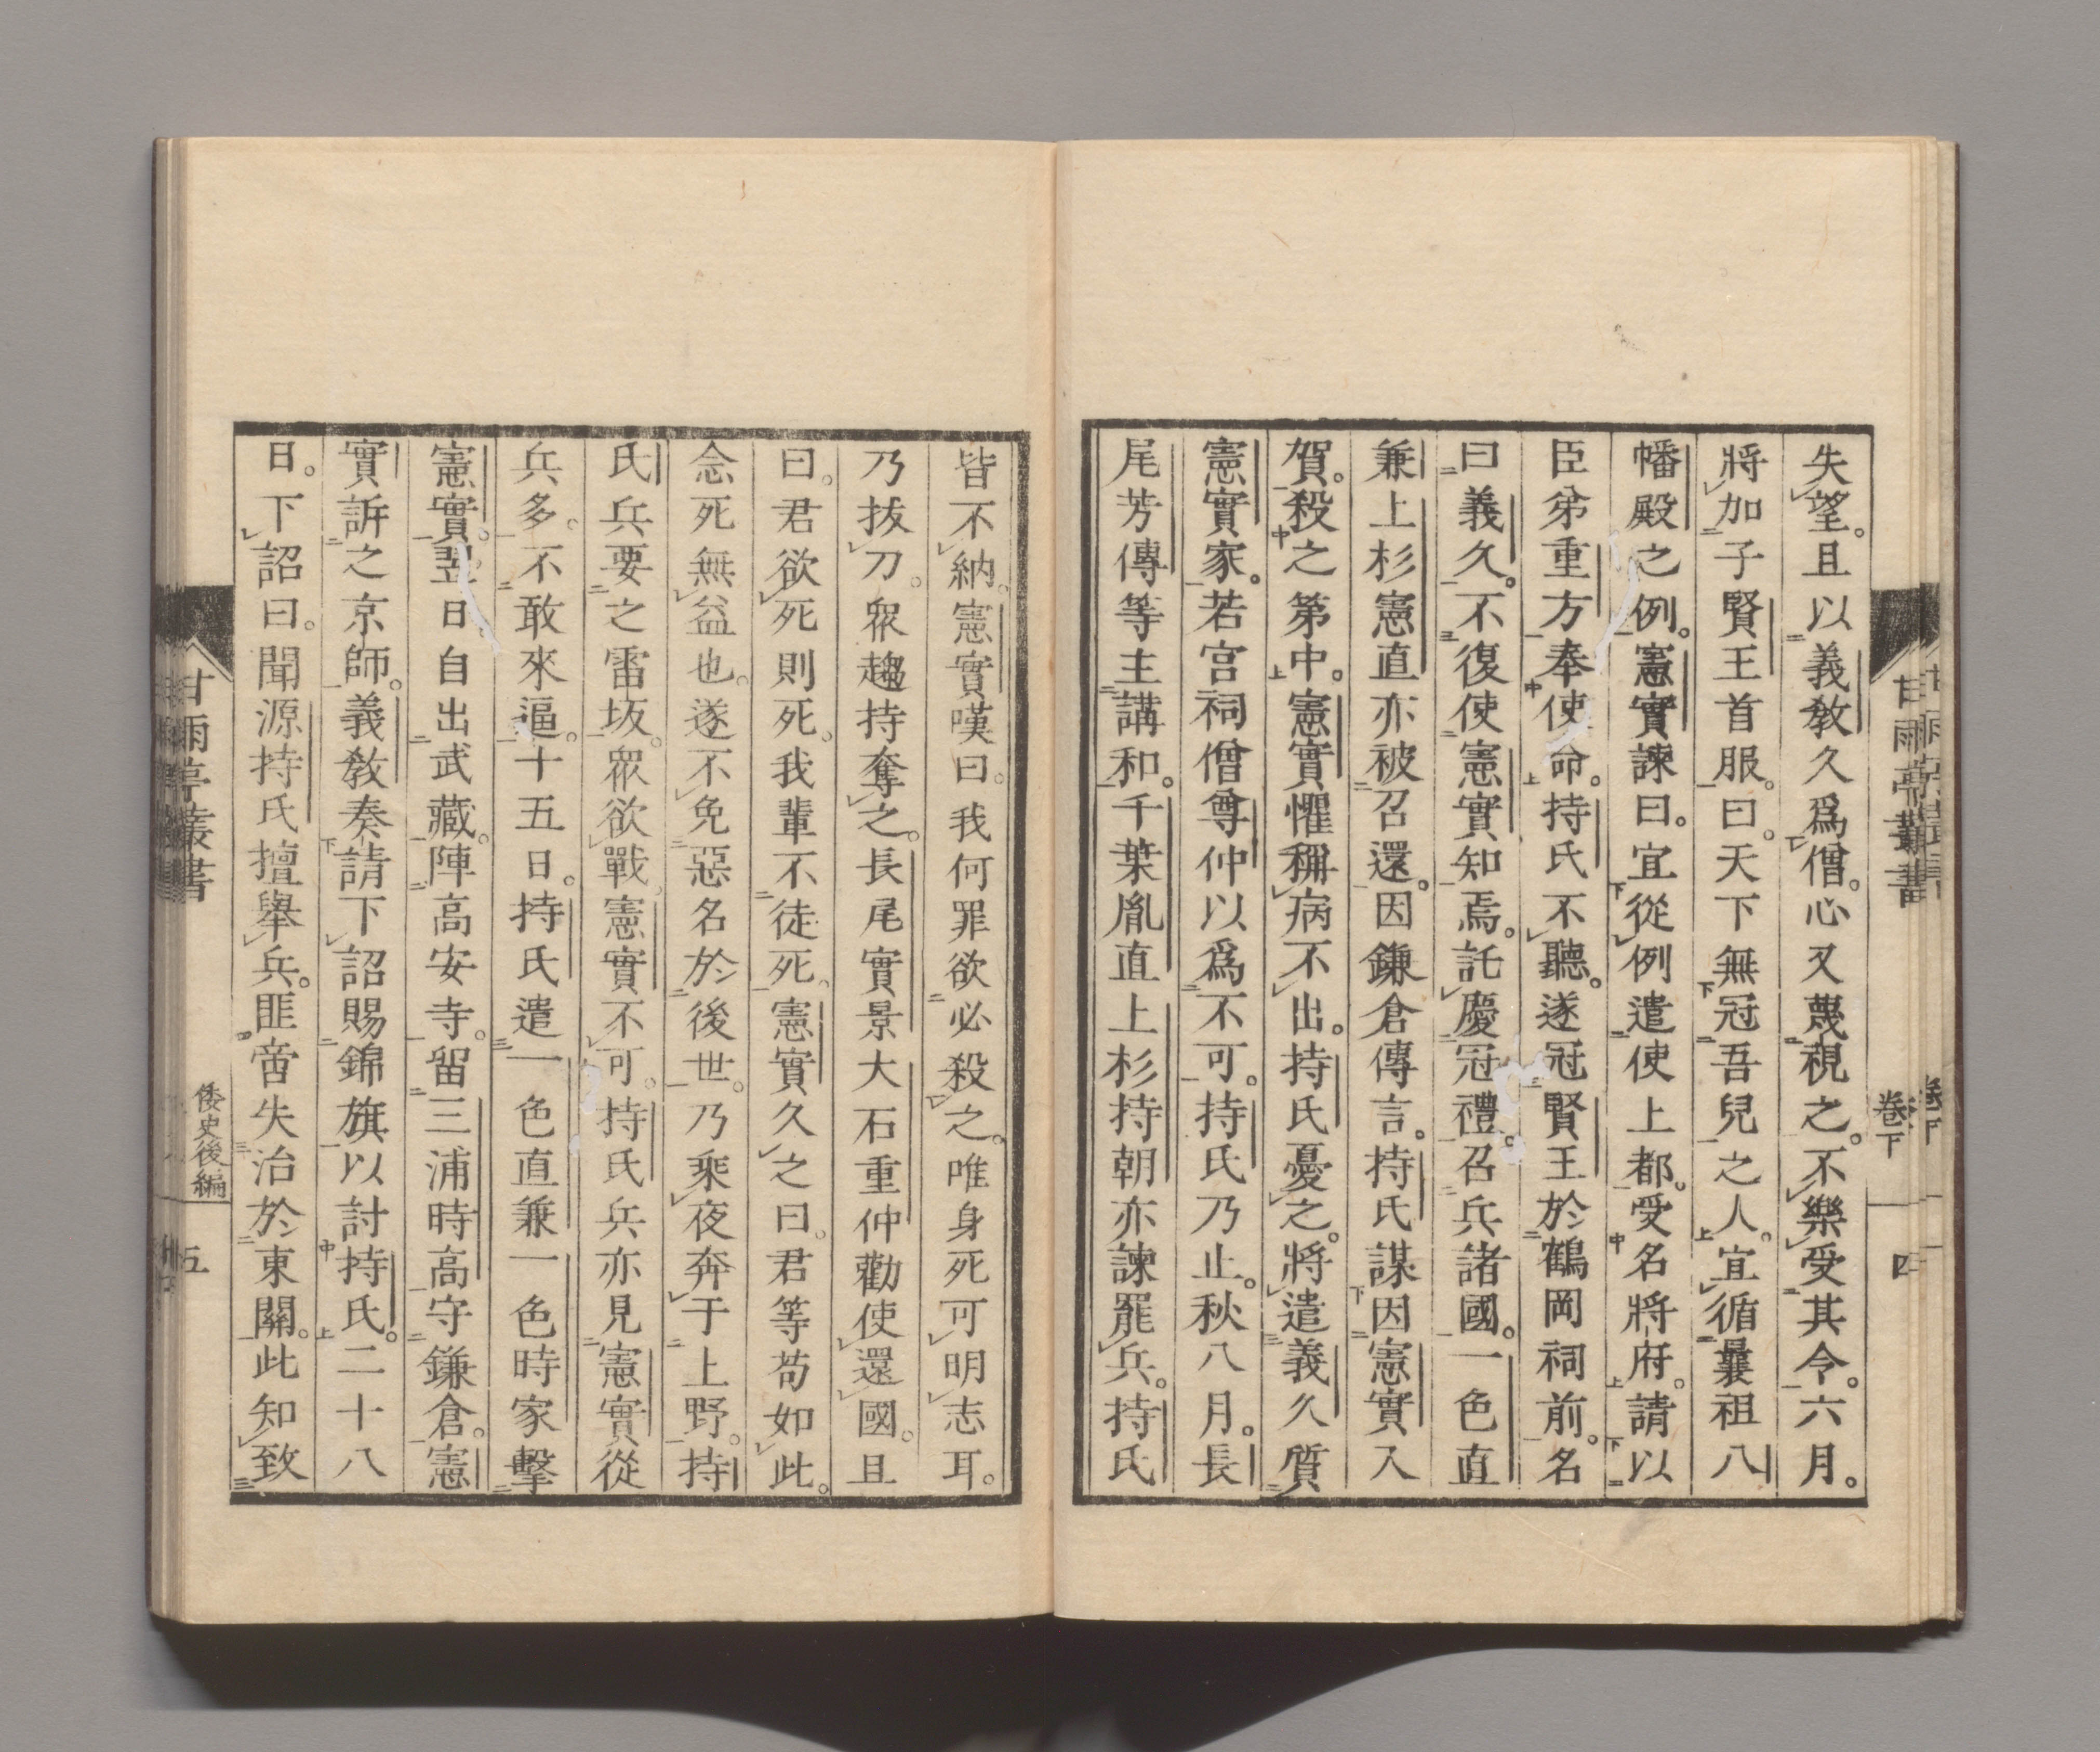 失望。且以義敎久爲僧。心又蔑視之。不樂受其令。六月。
將加子賢王首服。曰。天下無冠吾兒之人。宜循曩祖八
幡殿之例。憲實諫曰。宜從例遣使上都。受名將府。請以
臣弟重方奉使命。持氏不聽。遂冠賢王於鶴岡祠前。名
曰義久。不復使憲實知焉。託慶冠禮。召兵諸國。一色直
兼上杉憲直亦被召還。因鎌倉傳言。持氏謀因憲實入
賀。殺之第中。憲實懼稱病不出。持氏憂之。將遣義久質
憲實家。若宮祠僧尊仲以爲不可。持氏乃止。秋八月。長
尾芳傳等主講和。千葉胤直上杉持朝亦諫罷兵。持氏
甘雨亭叢書
卷下
四
皆不納。憲實嘆曰。我何罪欲必殺之。唯身死可明志耳。
乃拔刀。衆趨持奪之。長尾實景大石重仲勸使還國。且
曰。君欲死則死。我輩不徒死。憲實久之曰。君等苟如此。
念死無益也。遂不免惡名於後世。乃乘夜奔于上野。持
氏兵要之雷坂。衆欲戰。憲實不可。持氏兵亦見憲實從
兵多。不敢來逼。十五日。持氏遣一色直兼一色時家擊
憲實。翌日自出武藏。陣高安寺。留三浦時高守鎌倉。憲
實訴之京師。義敎奏請下詔賜錦旗以討持氏。二十八
日。下詔曰。聞源持氏擅舉兵。匪啻失治於東關。此知致
甘雨亭叢書
倭史後編
五